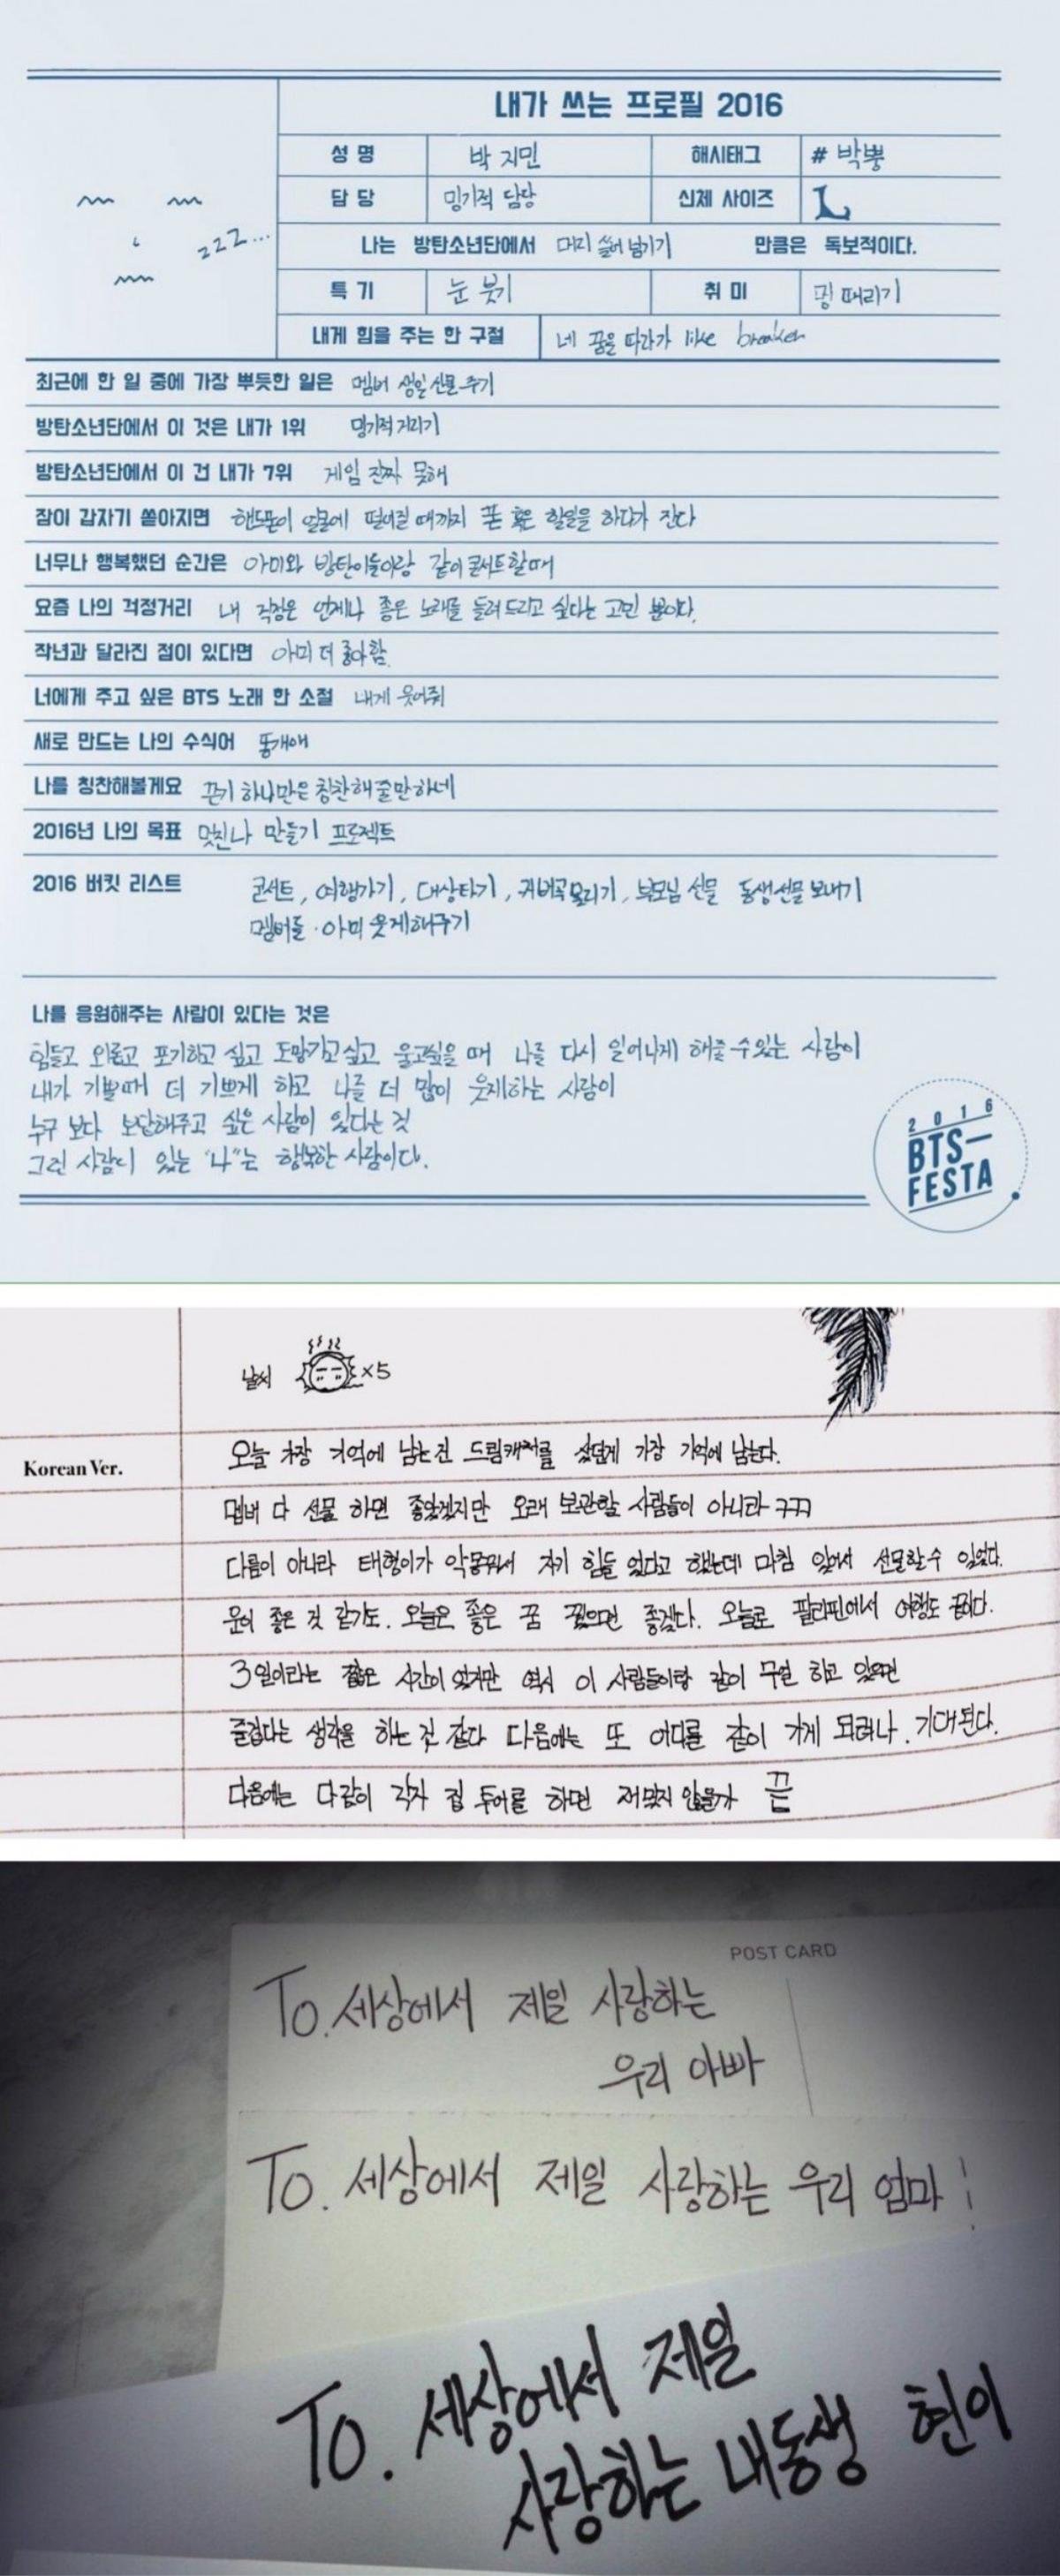 내가 쓰는 프로필 2016
성명 박지민 해시태그 #박뿡
담당 밍기적 담당 신체 사이즈 L
zzz...
나는 방탄소년단에서 머리 쓸어 넘기기 만큼은 독보적이다.
특기 눈 붓기 취미 멍 때리기
내게 힘을 주는 한 구절 네 꿈을 따라가 like breaker
최근에 한 일 중에 가장 뿌듯한 일은 멤버 생일선물 주기
방탄소년단에서 이 것은 내가 1위 밍기적거리기
방탄소년단에서 이 건 내가 7위 게임 진짜 못해
잠이 갑자기 쏟아지면 핸드폰이 얼굴에 떨어질 때까지 폰 혹은 할일을 하다가 잔다
너무나 행복했던 순간은 아미와 방탄이들이랑 같이 콘서트할때
요즘 나의 걱정거리 내 걱정은 언제나 좋은 노래를 들려드리고 싶다는 고민 뿐이다.
작년과 달라진 점이 있다면 아미 더 좋아함
너에게 주고 싶은 BTS 노래 한 소절 내게 웃어줘
새로 만드는 나의 수식어 똥개애
나를 칭찬해볼게요 끈기 하나만은 칭찬해줄만하네
2016년 나의 목표 멋진나 만들기 프로젝트
2016 버킷 리스트 콘서트, 여행가기, 대상타기, 커버곡올리기, 부모님 선물 동생선물보내기
멤버들·아미 웃게해주기
나를 응원해주는 사람이 있다는 것은
힘들고 외롭고 포기하고 싶고 도망가고싶고 울고싶을 때 나를 다시 일어나게 해줄 수 있는 사람이
내가 기쁠때 더 기쁘게 하고 나를 더 많이 웃게하는 사람이
누구 보다 보답해주고 싶은 사람이 있다는 것
그런 사람이 있는 "나"는 행복한 사람이다.
2016
BTS
FESTA
날씨 x5
Korean Ver.
오늘 가장 기억에 남는건 드림캐쳐를 샀던게 가장 기억에 남는다.
멤버 다 선물 하면 좋았겠지만 오래 보관할 사람들이 아니라 ㅋㅋㅋ
다름이 아니라 태형이가 악몽꿔서 자기 힘들었다고 했는데 마침 있어서 선물할수 있었다.
운이 좋은 것 같기도. 오늘은 좋은 꿈 꿨으면 좋겠다. 오늘로 필리핀에서 여행도 끝이다.
3일이라는 짧은 시간이었지만 역시 이 사람들이랑 같이 무얼 하고 있으면
즐겁다는 생각을 하는 것 같다 다음에는 또 어디를 같이 가게 되려나. 기대된다.
다음에는 다같이 각자 집 투어를 하면 재밌지 않을까 끝
POST CARD
To. 세상에서 제일 사랑하는
우리 아빠
To. 세상에서 제일 사랑하는 우리 엄마!
To. 세상에서 제일
사랑하는 내동생 현이